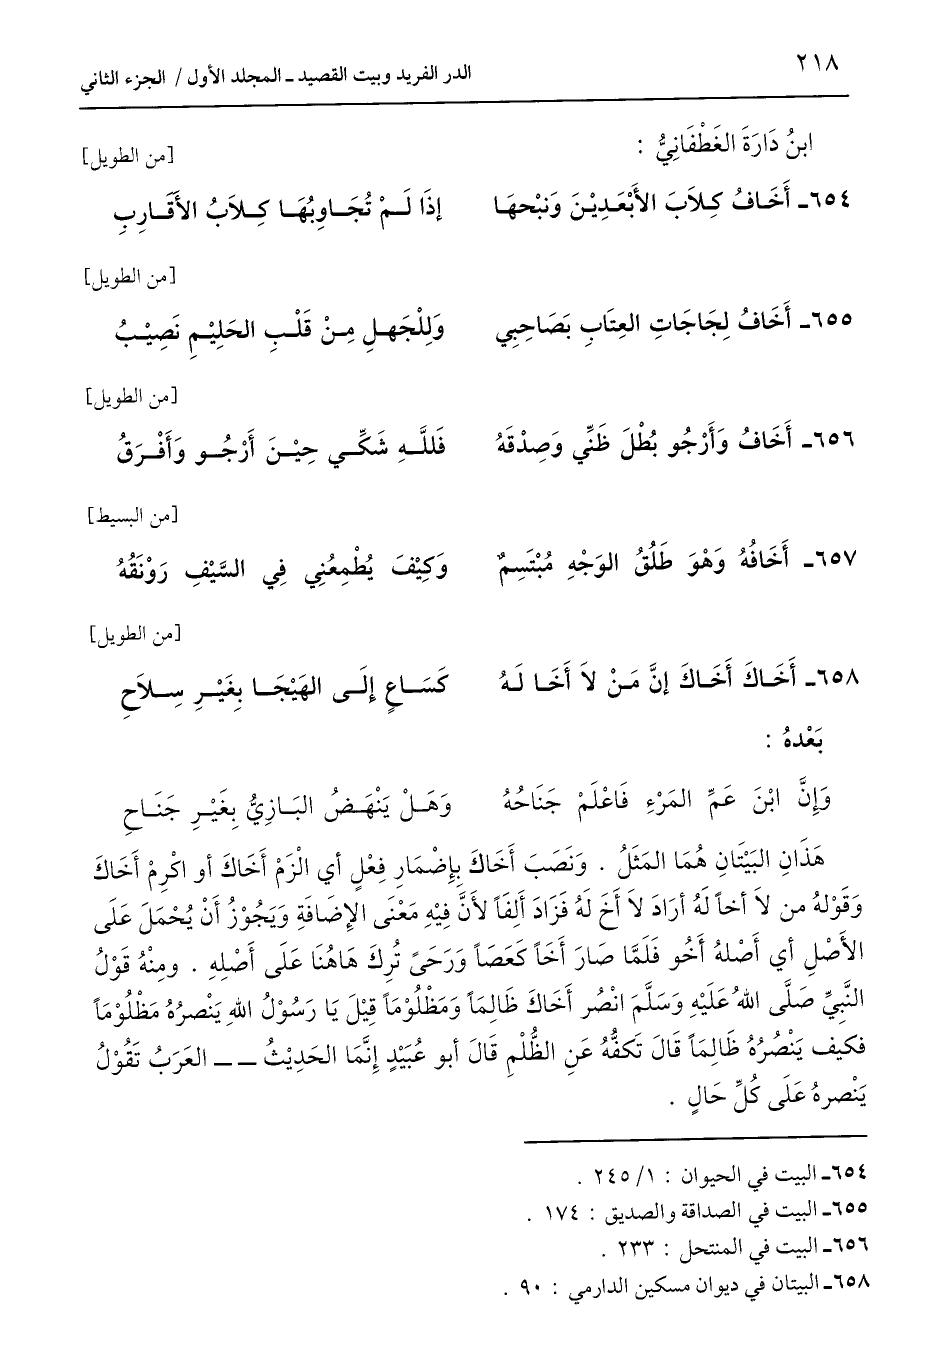 ٢١٨
الدر الفريد وبيت القصيد ـ المجلد الأول / الجزء الثاني
ابنُ دَارَةَ الغَطْفَانِيُّ :
[من الطويل]
٦٥٤ـ أَخَافُ كِلاَبَ الأَبْعَدِيْنَ وَنَبْحهَا إِذَا لَمْ تُجَاوِبُهَا كِلاَبُ الأَقَارِبِ
[من الطويل]
٦٥٥ـ أَخَافُ لِجَاجَاتِ العِتَابِ بَصَاحِبِي وَلِلْجَهلِ مِنْ قَلْبِ الحَلِيْمِ نَصِيْبُ
[من الطويل]
٦٥٦ـ أَخَافُ وَأَرْجُو بُطْلَ ظَنِّي وَصِدْقَهُ فَللَّهِ شَكِّي حِيْنَ أَرْجُو وَأَفْرَقُ
[من البسيط]
٦٥٧ـ أَخَافُهُ وَهْوَ طَلُقُ الوَجْهِ مُبْتَسِمٌ وَكِيْفَ يُطْمِعُنِي فِي السَّيْفِ رَوْنَقُهُ
[من الطويل]
٦٥٨ـ أَخَاكَ أَخَاكَ إِنَّ مَنْ لاَ أَخَا لَهُ كَسَاعٍ إِلَى الهَيْجَا بِغَيْرِ سِلاَحِ
بَعْدهُ :
وَإِنَّ ابْنَ عَمِّ المَرْءِ فَاعْلَم جَنَاحُهُ وَهَلْ يَنْهَضُ البَازِيُّ بِغَيْرِ جَنَاحِ
هَذَانِ البَيْتَانِ هُمَا المَثَلُ . وَنَصَبَ أَخَاكَ بِإِضْمَارِ فِعْلٍ أي الْزَمْ أَخَاكَ أو اكْرِمْ أَخَاكَ
وَقَوْلهُ من لاَ أخاً لَهُ أرَادَ لاَ أخَ لَهُ فَزَادَ ألِفَاً لأَنَّ فِيْهِ مَعْنَى الإِضَافَةِ وَيَجُوْزُ أَنْ يُحْمَلَ عَلَى
الأَصْلِ أي أصْلهُ أَخُو فَلَمَّا صَارَ أَخَاً كَعَصَاً وَرَحَىً تُرِكَ هَاهُنَا عَلَى أصْلِهِ . ومِنْهُ قَوْلُ
النَّبِيِّ صَلَّى اللهُ عَلَيْهِ وَسَلَّمَ انْصُر أَخَاكَ ظَالِمَاً وَمَظْلُوْمَاً قِيْلَ يَا رَسُوْلُ اللهِ يَنْصرُهُ مَظْلُوْمَاً
فكيف يَنْصُرُهُ ظَالِمَاً قَالَ تَكفُّهُ عَنِ الظُّلْمِ قَالَ أبو عُبَيْدٍ إِنَّمَا الحَدِيْثُ ــ ــ العَرَبُ تَقُوْلُ
يَنْصرهُ عَلَى كُلِّ حَالٍ .
٦٥٤ـ البيت في الحيوان : ١/ ٢٤٥ .
٦٥٥ـ البيت في الصداقة والصديق : ١٧٤ .
٦٥٦ـ البيت في المنتحل : ٢٣٣ .
٦٥٨ـ البيتان في ديوان مسكين الدارمي : ٩٠ .